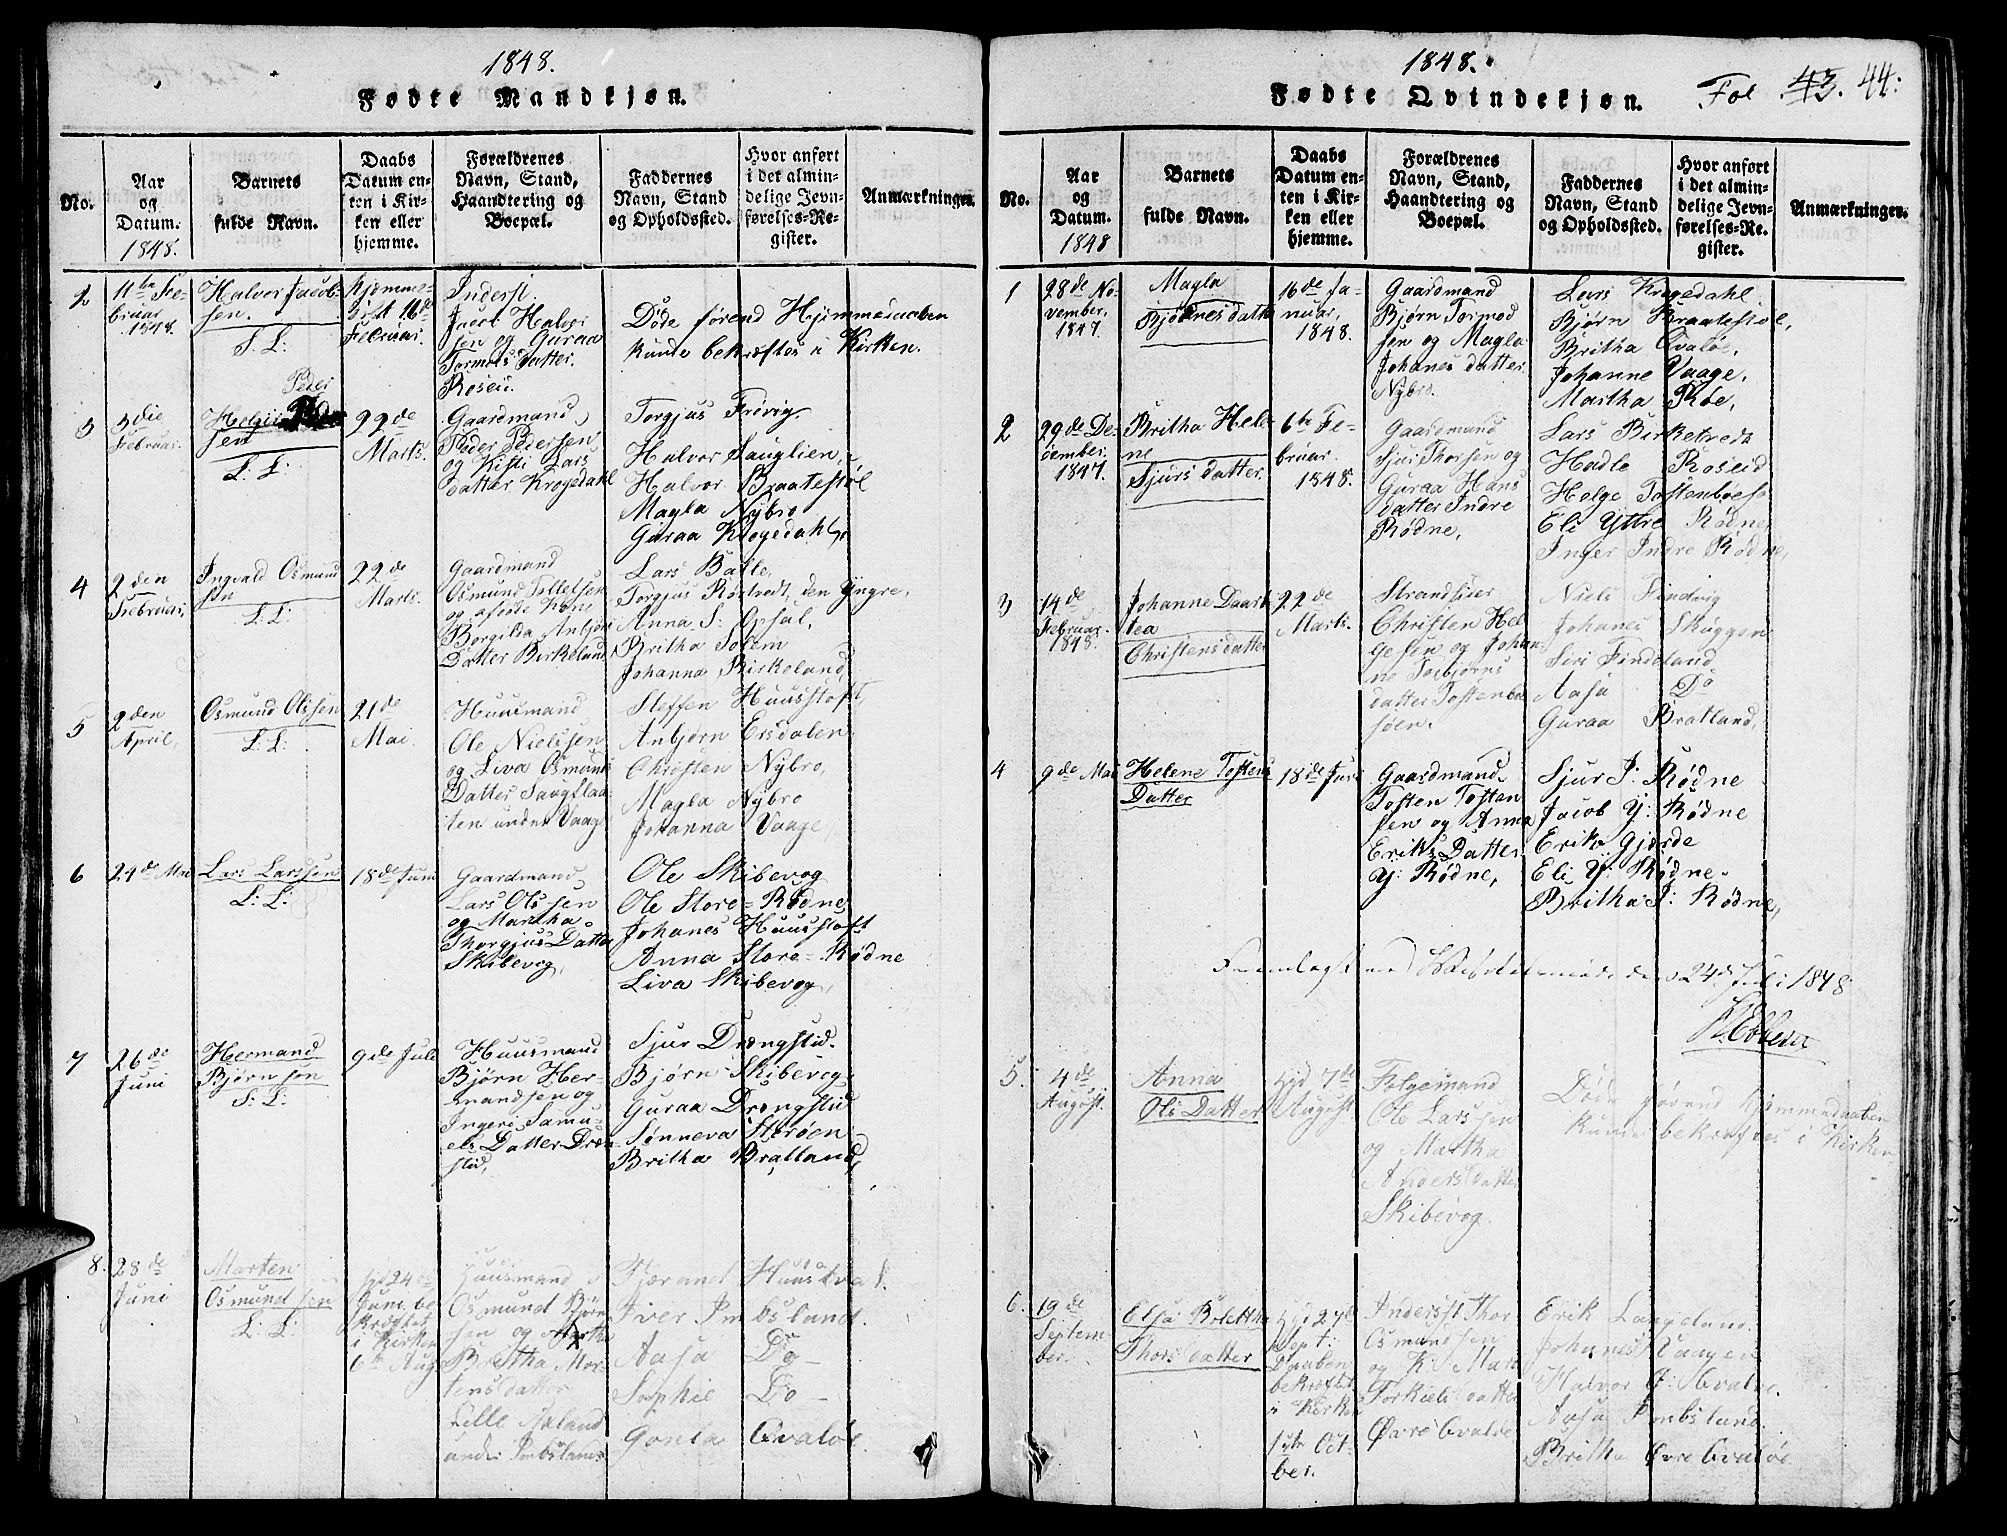 1848.
Fødte Mandkjøn.
No.
Aar
og
Datum.
1848.
Barnets
fulde Navn.
Daabs
Datum en-
ten i Kir-
ken eller
hjemme.
Forældrenes
Navn, Stand,
Haandtering og
Boepæl.
Faddernes
Navn, Stand
og Opholdssted.
Hvor anført
i det almin-
delige Jevn-
førelses-Re-
gister.
Anmærkninger.
2
11te Fe-
bruar
1848.
Halvor Jacob-
sen.
Hjemme-
døbt 16de
Februar.
Inderst
Jacob Halvor
sen og Guraa
Tormods datter
Roseid.
Døde førend Hjemmedaaben
kunde bekræftes i Kirken.
3
3die
Februar.
Peder
Helge
sen
L: L:
22de
Marts.
Gaardmand
Peder Pedersen
og Kisti Lars
datter Krogedahl
Torgjus Frøvig
Halvor Sauglien,
Halvor Braatestøl
Magla Nybro
Guraa Krogedahl,
4
2den
Februar,
Ingvald Osmund
sen
L: L:
22de
Marts.
Gaardmand
Osmund Tolletsen
og afdøde Kone
Borgilda Anbjørn
Datter Birkeland
Lars Balle,
Torgjus Rørtvedt, den Yngre,
Anna S: Opsal,
Britha Solem
Johanna Birkeland,
5
2den
April,
Osmund Olssen
L: L:
21de
Mai.
Huusmand
Ole Nielssen
og Liva Osmunds
Datter Saugflaa-
ten under Vaage
Steffen Huusstoft,
Anbjørn Ersdalen
Christen Nybro,
Magla Nybro
Johanna Vaage,
6
24de Mai
Lars Larssen
L: L:
18de Juni
Gaardmand
Lars Olssen
og Martha
Thorgjus Datter
Skibevog,
Ole Skibevog
Ole Store-Rødne
Johanes Huusstoft
Anna Store-Rødne
Liva Skibevog,
7
26de
Juni
Hermand
Bjørnsen
9de Juli
Huusmand
Bjørn Her-
mandsen og
Ingeri Samu-
els Datter Dreng-
stid,
Sjur Drengstid.
Bjørn Skibevog
Guraa Drengstid
Sønneva Storøen
Britha Bratland,
8.
28de
Juni
Marten
Osmundsen
L: L:
Hjd 24de
Juni be
kræftet
i Kirken
6te Aug
Huusmand
Osmund Bjørn
sen og
Britha Mor-
tensdatter
Lille Aaland
under Imbsland
Tjerand Huustvat.
Iver Imbsland.
Aasa Do
Sophie Do
Gonla Qvaløe.
1848.
Fødte Qvindekjøn.
Fol 43. 44:
No.
Aar
og
Datum.
1848
Barnets
fulde Navn.
Daabs
Datum en-
ten i Kir-
ken eller
hjemme.
Forældrenes
Navn, Stand,
Haandtering og
Boepæl.
Faddernes
Navn, Stand
og Opholdssted.
Hvor anført
i det almin-
delige Jevn-
førelses-Re-
gister.
Anmærkninger.
1
28de No-
vember,
1847.
Magla
Bjørnes datter
16de Ja-
nuar,
1848.
Gaardmand
Bjørn Tormod
sen og Magla
Johanes datter
Nybro.
Lars Krogedahl.
Bjørn Braatestøl,
Britha Qvaløe,
Johanne Vaage,
Martha Røe,
2
29de De-
cember.
1847.
Britha Hele
ne
Sjurs datter.
6te Fe-
bruar.
1848.
Gaardmand
Sjur Thorsen og
Guraa Hans
datter Indre
Rødne,
Lars Birketvedt
Hadle Roseid
Helge Tostenbøe
Eli Yttre Rødne,
Inger Indre Rødne,
3
14de
Februar.
1848.
Johanne Daart
tea
Christens datter
22de
Marts.
Strandsider
Christen Hel
gesen og Johan
ne Torbjørns
datter Tostenbø
søen.
Niels Findvig
Johanes Skeggen
Siri Findeland
Aasa Do
Guraa Bratland,
4
9de Mai
Helene Tostens
Datter
18de Juni
Gaardmand
Tosten Tosten
sen og Anna
Eriks Datter
Y: Rødne,
Sjur I: Rødne
Jacob Y: Rødne
Erik Gjerde
Eli Y: Rødne
Britha I: Rødne,
den 24de Juli 1848
5.
4de
August.
Anna
Ols Datter
Hjd 7de
August
Følgemand
Ole Larssen
og Martha
Anders datter
Skibevog.
Døde førend Hjemmedaaben
kunde bekræftes i Kirken
6.
19de
Septem
ber.
Elsa Bolettha
Thors datter
Hjd 27de
Sept:
Daaben
bekræftet
i Kirken
1ste Oct-
ber.
Inderst Thor
Osmundsen
og K. Mari
Torkiels datter
Øvre Qvaløe
Erik Langeland.
Johanes Vaagen
Halvor I: Qvaløe.
Aasa Imbsland.
Britha Øvre Qvaløe